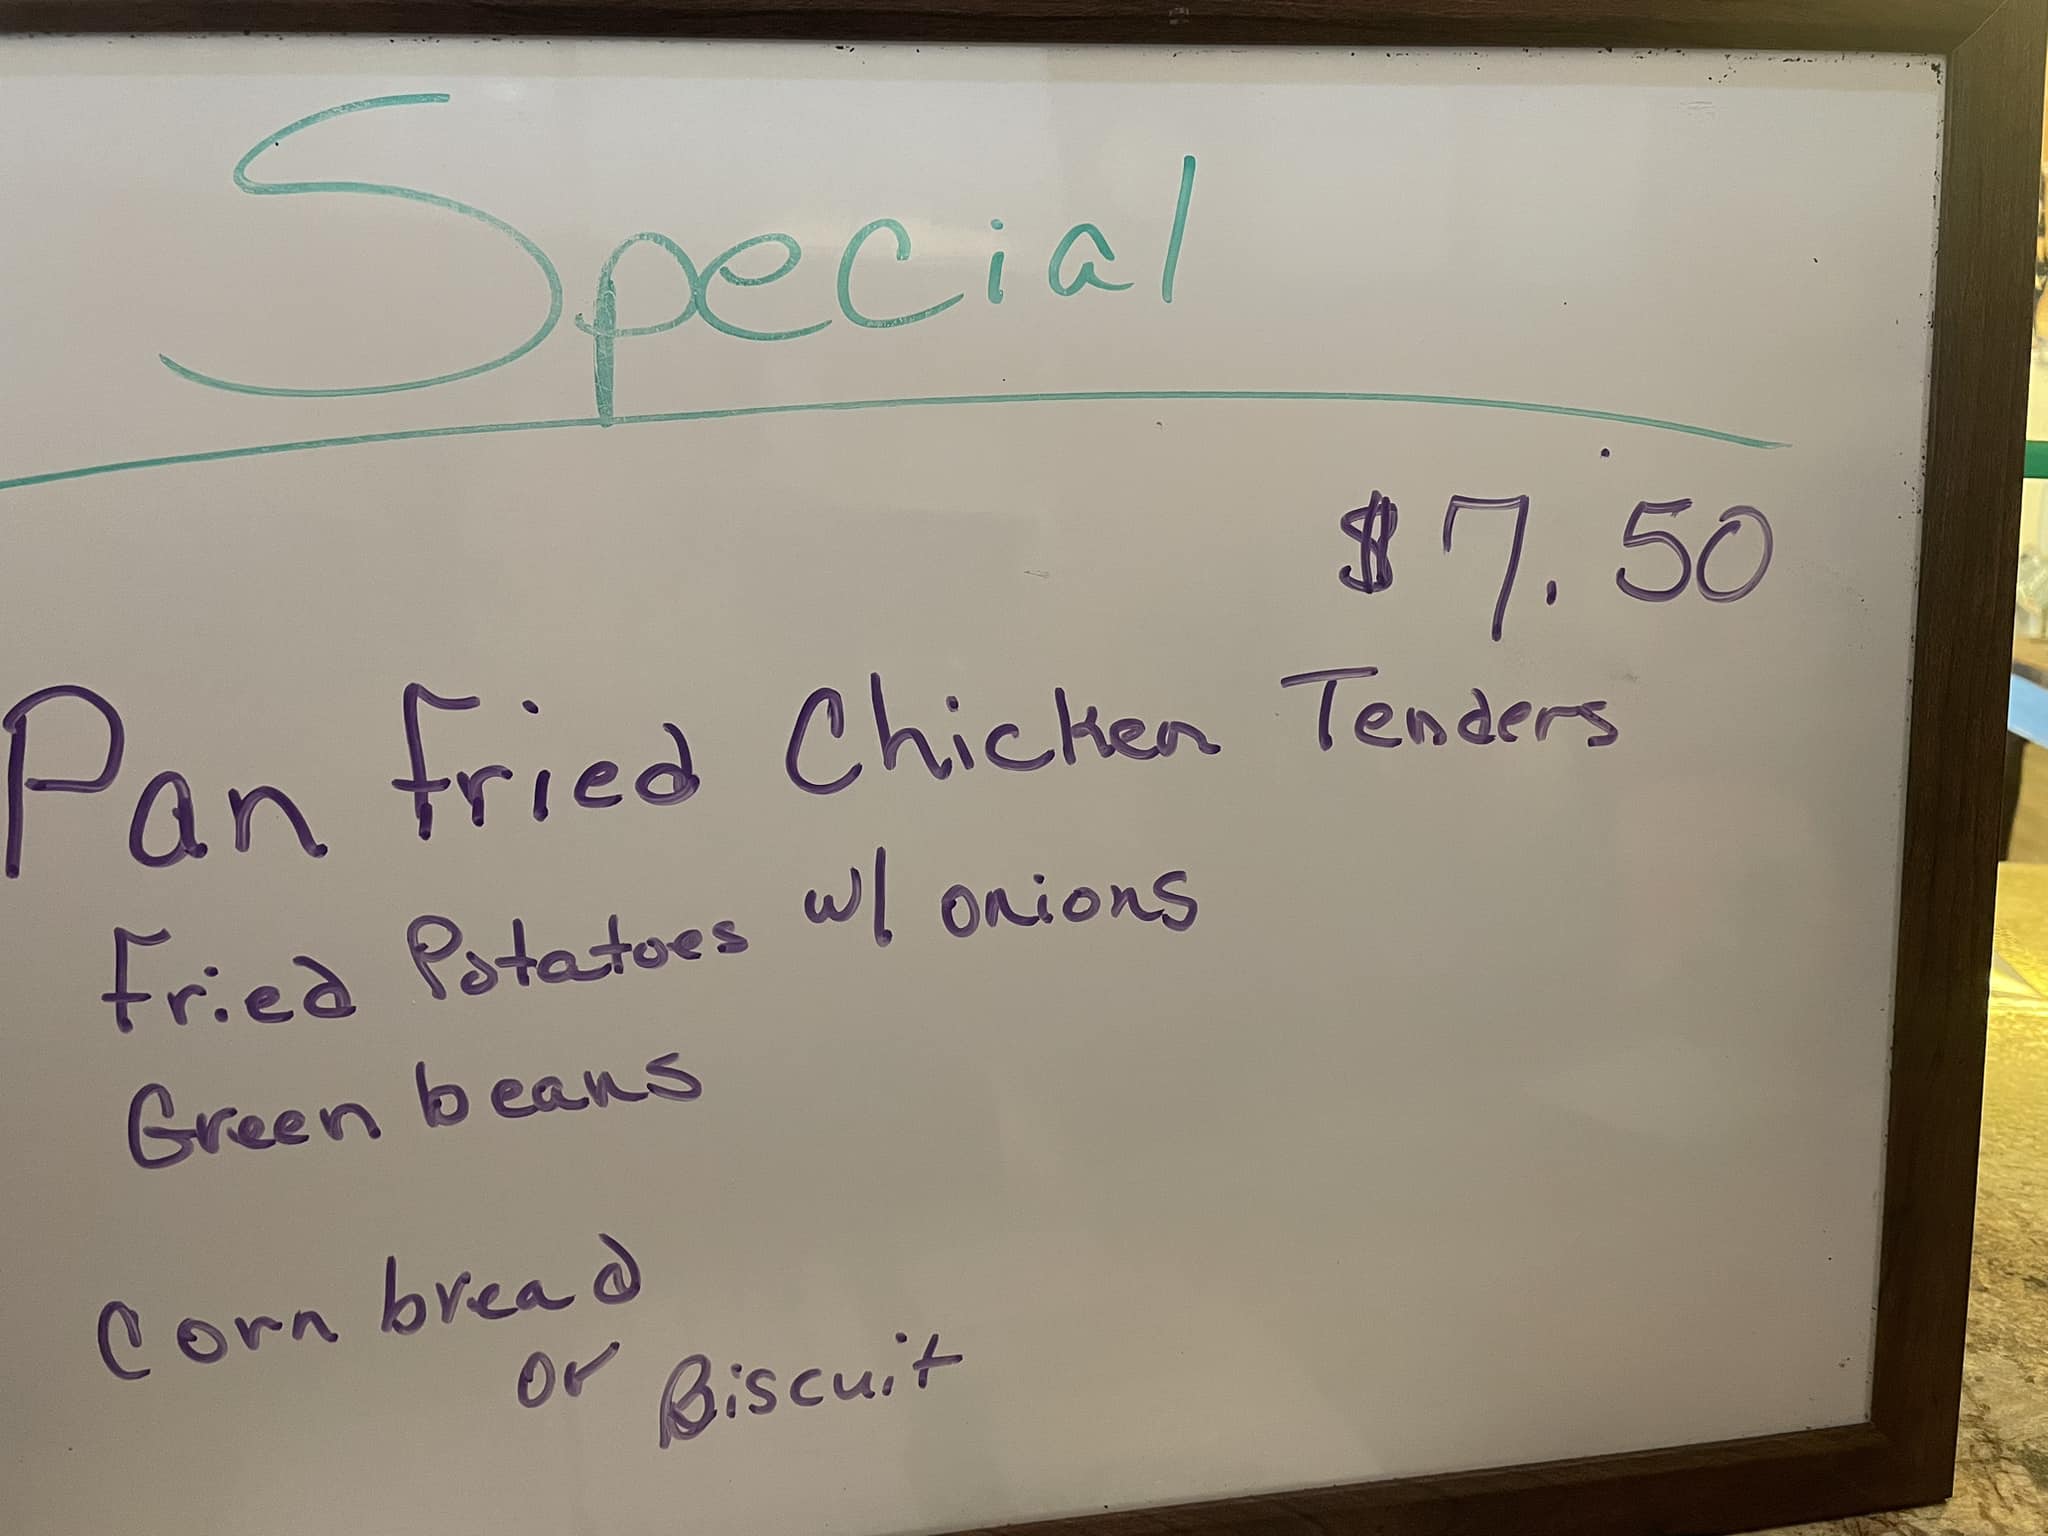 Special
$7.50
Pan Fried Chicken Tenders
Fried Potatoes w/ onions
Green beans
Corn bread
or Biscuit